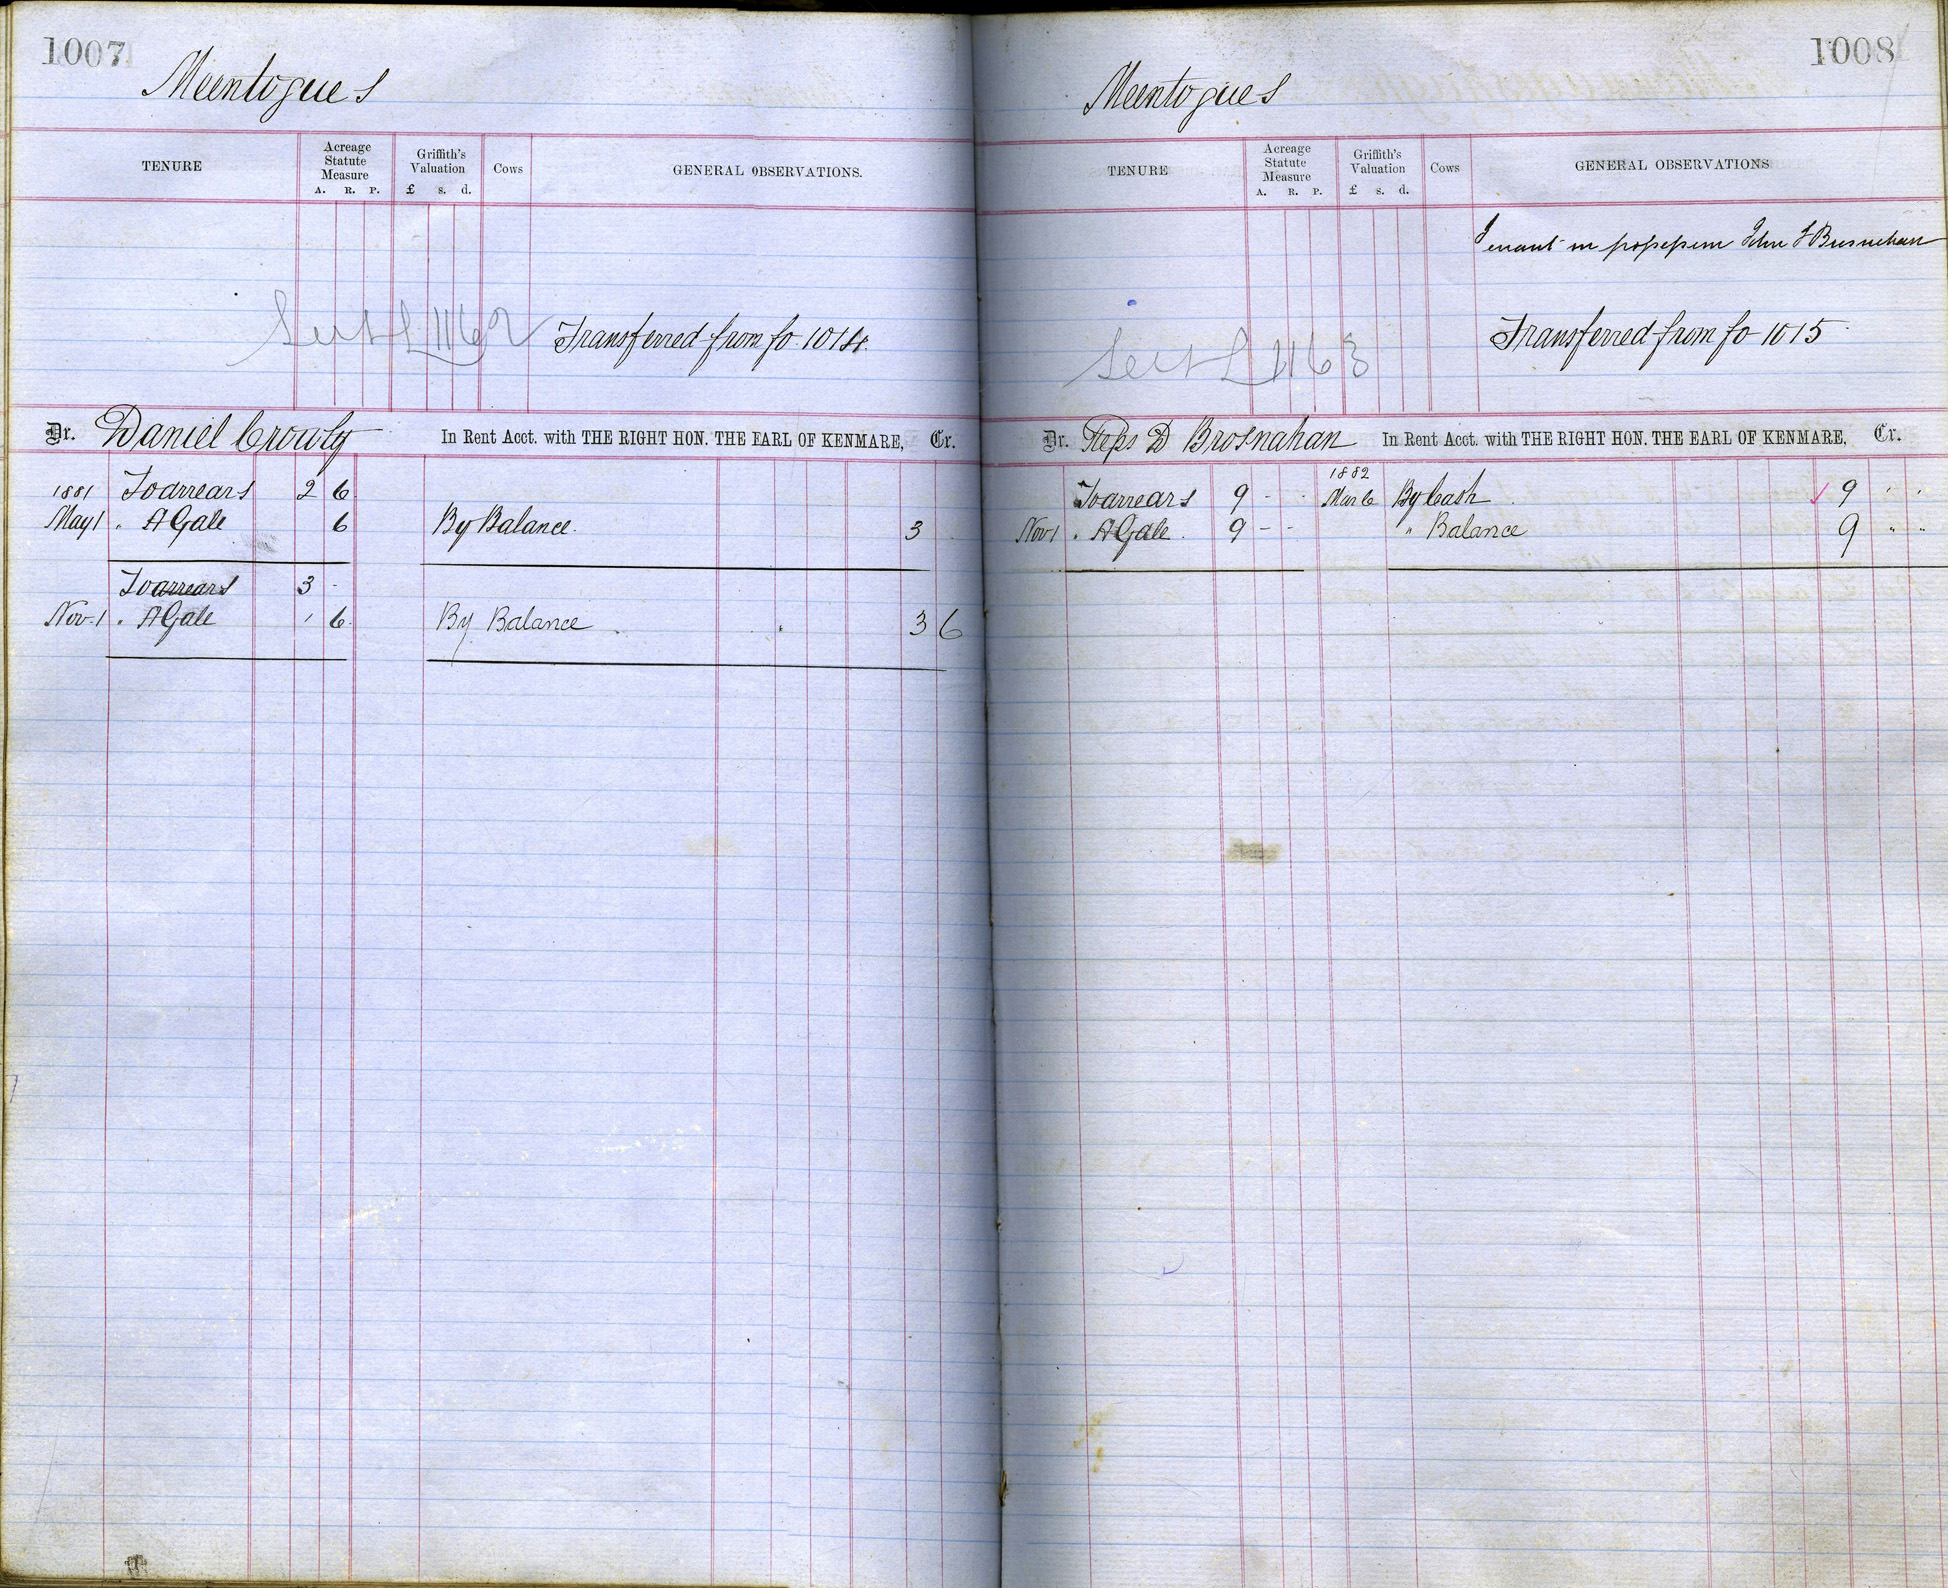 1007
Meentogues
TENURE
Acreage Statute Measure
A. R. P.
Griffith's Valuation
£ s. d.
Cows
GENERAL OBSERVATIONS.
1162
Transferred from fo 1014
Dr. Daniel Crowly In Rent Acct. with THE RIGHT HON. THE EARL OF KENMARE, Cr.
1881 To arrears 2 6
May 1 " A Gale 6 By Balance. 3
To arrears 3 -
Nov 1 " A Gale ' 6 By Balance 3 6
1008
Meentogues
TENURE
Acreage Statute Measure
A. R. P.
Griffith's Valuation
£ s. d.
Cows
GENERAL OBSERVATIONS
Tenant in possession John Brosnahan
1163
Transferred from fo 1015
Dr. Reps D Brosnahan In Rent Acct. with THE RIGHT HON. THE EARL OF KENMARE, Cr.
1882
To arrears 9 - - Mar 6 By Cash 9 ' '
Nov 1 " A Gale 9 - - " Balance 9 " "